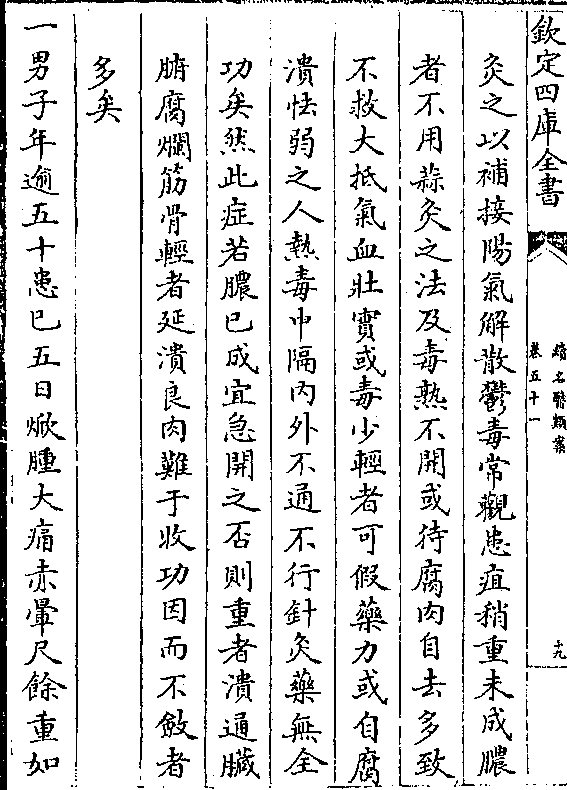 欽定四庫全書
續名醫類案
卷五十一
十九
灸之以補接陽氣解散鬱毒常觀患疽稍重未成膿
者不用蒜灸之法及毒熟不開或待腐肉自去多致
不救大抵氣血壯實或毒少輕者可假藥力或自腐
潰怯弱之人熱毒中隔内外不通不行針灸藥無全
功矣然此症若膿已成宜急開之否則重者潰通臟
腑腐爛筋骨輕者延潰良肉難于收功因而不斂者
多矣
一男子年逾五十患已五日焮腫大痛赤暈尺餘重如